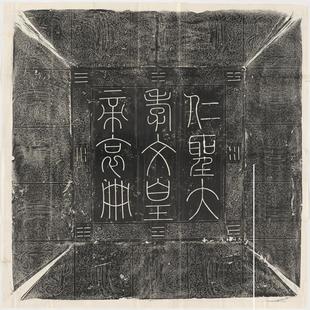 仁聖大
孝文皇
帝哀冊